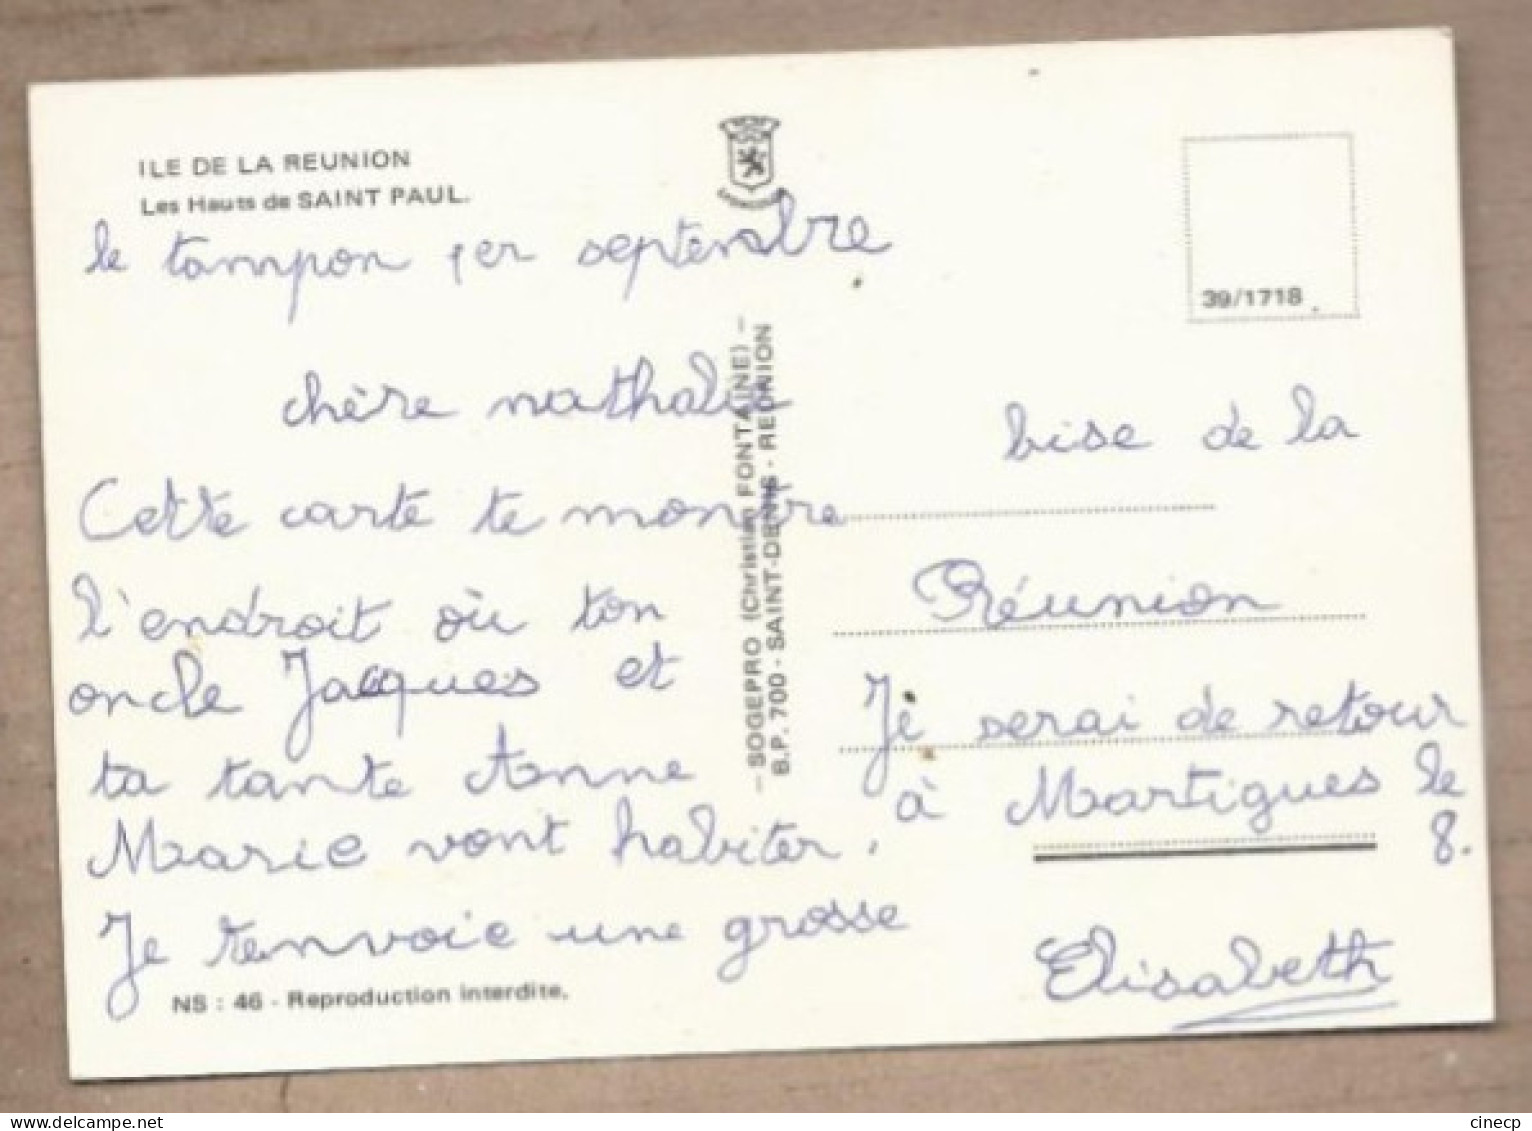 ILE DE LA REUNION
Les Hauts de SAINT PAUL.
le tampon 1er septembre
chère nathalie
Cette carte te montre
l'endroit où ton
oncle Jacques et
ta tante Anne
Marie vont habiter.
Je renvoie une grosse
NS : 46 - Reproduction interdite.
— SOGEPRO (Christian FONTAINE) —
B.P. 700 - SAINT-DENIS - REUNION
39/1718
bise de la
Réunion
Je serai de retour
à Martigues le
8.
Elisabeth
delcampe.net
cinecp